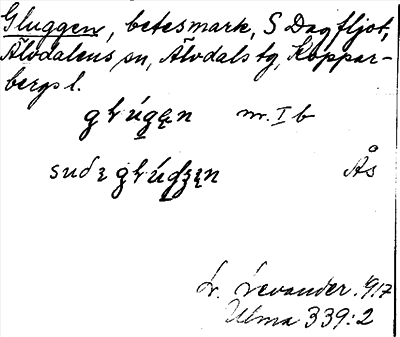 Gluggen, betesmark, S Dagfljot,
Älvdalens sn, Älvdals tg, Koppar-
bergs l.
glúgęn m. I b
sudɛ glúdʒęn Ås
L. Levander. 1917
Ulma 339:2